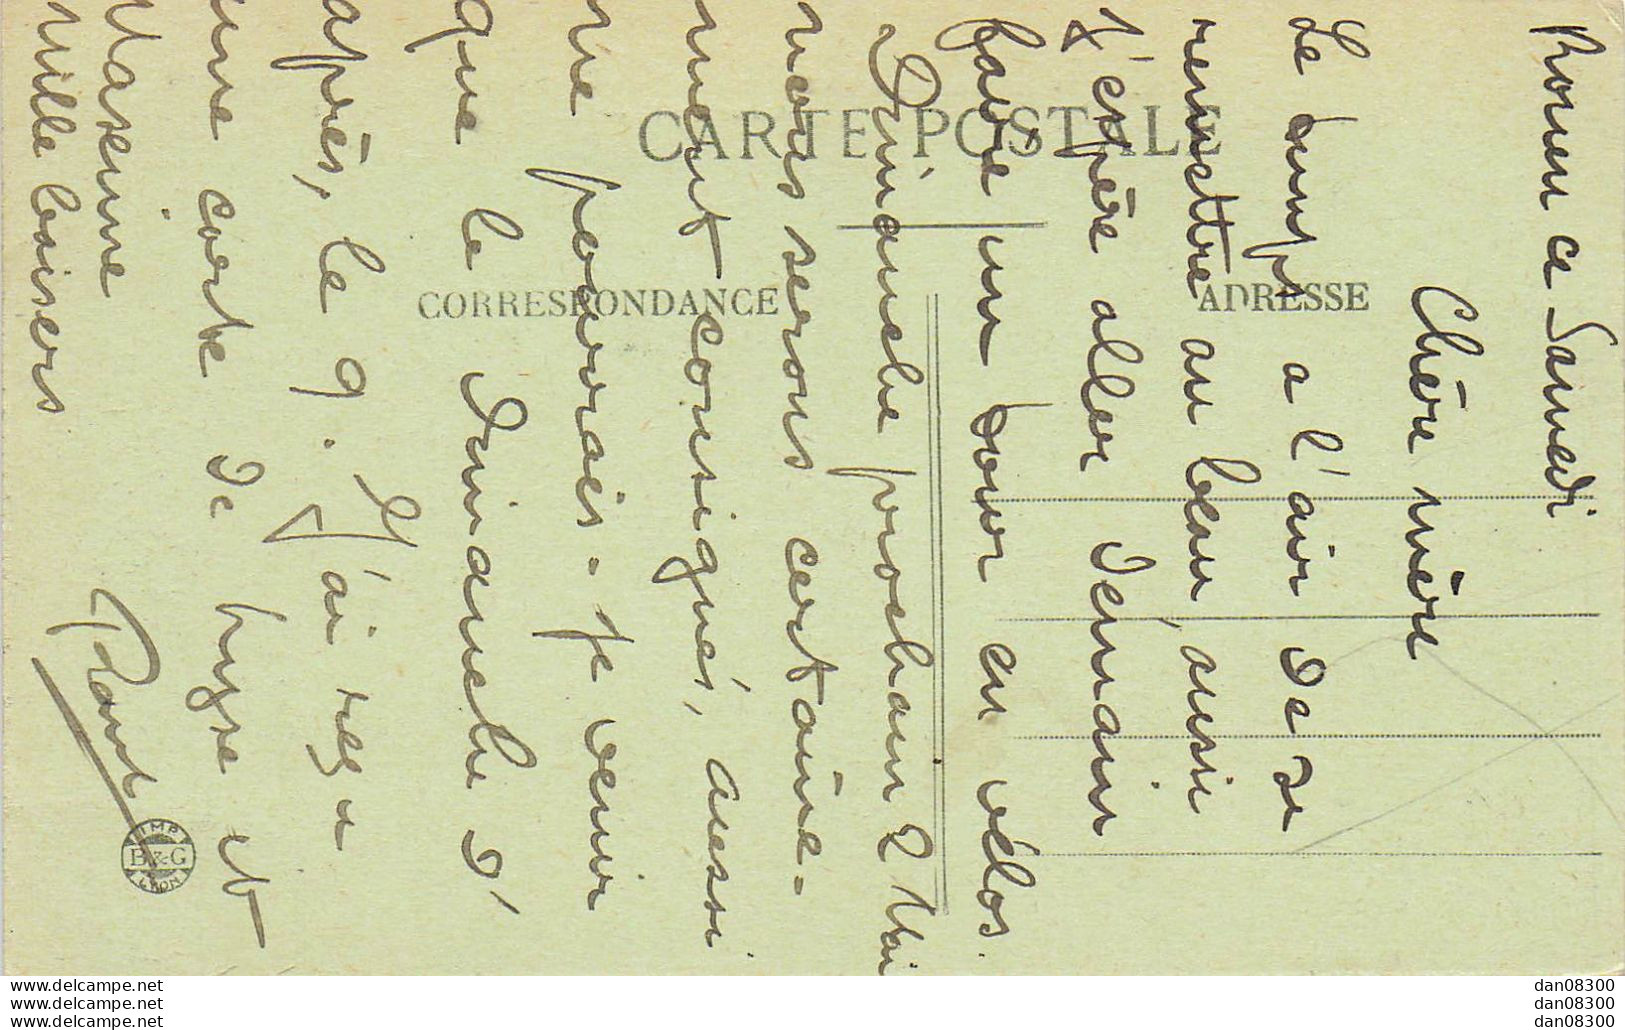 Rouen ce Samedi
Chère mère
Le temps a l'air de se
remettre au beau, aussi
J'espère aller demain
faire un tour en vélos.
Dimanche prochain 2 Mai
nous serons certaine-
ment consignés, aussi
ne pourrais-je venir
que le dimanche d'
après, le 9. J'ai reçu
une carte de Lucyse et
Maxenine
Mille baisers
CARTE POSTALE
CORRESPONDANCE
ADRESSE
IMP.
B&G
LYON
www.delcampe.net
www.delcampe.net
www.delcampe.net
dan08300
dan08300
dan08300